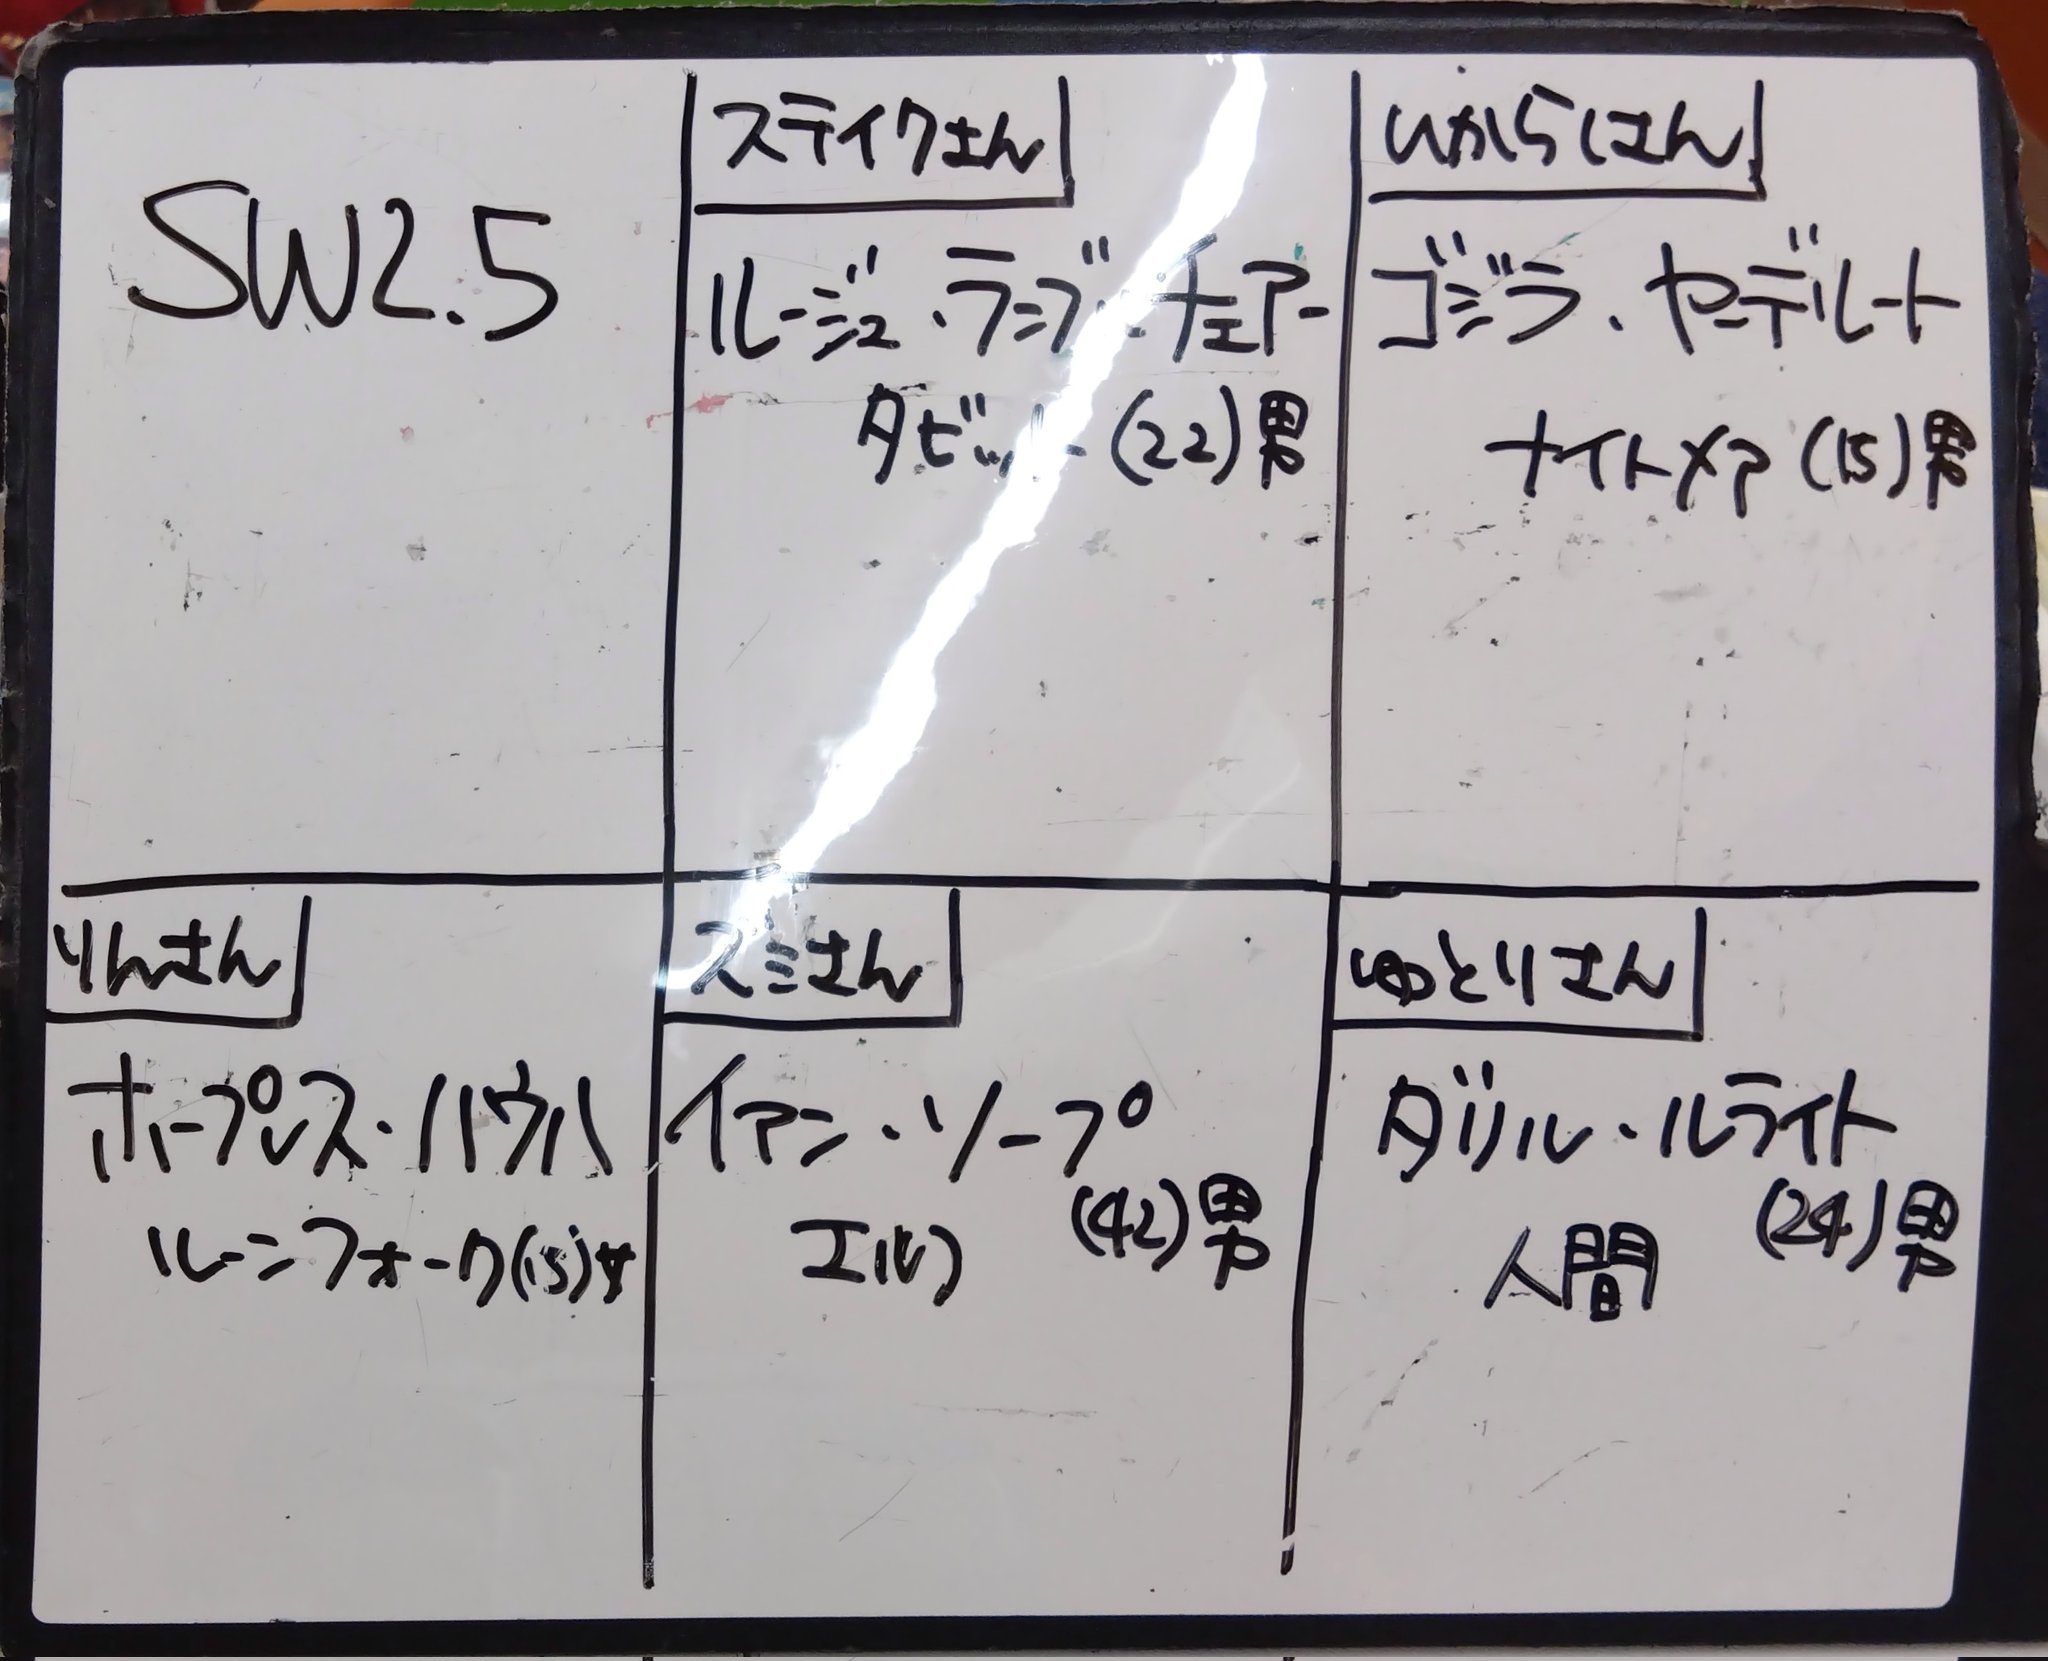 SW2.5
ステイクさん
ルージュ・ラブ・チェアー
タビット (22) 男
いがらしさん
ゴジラ・ヤーデルート
ナイトメア (15) 男
りんさん
ホープレス・ハウル
ルーンフォーク (15) 女
スミさん
イアン・ソープ
(42) 男
エルフ
ゆとりさん
ダリル・ルライト
(24) 男
人間